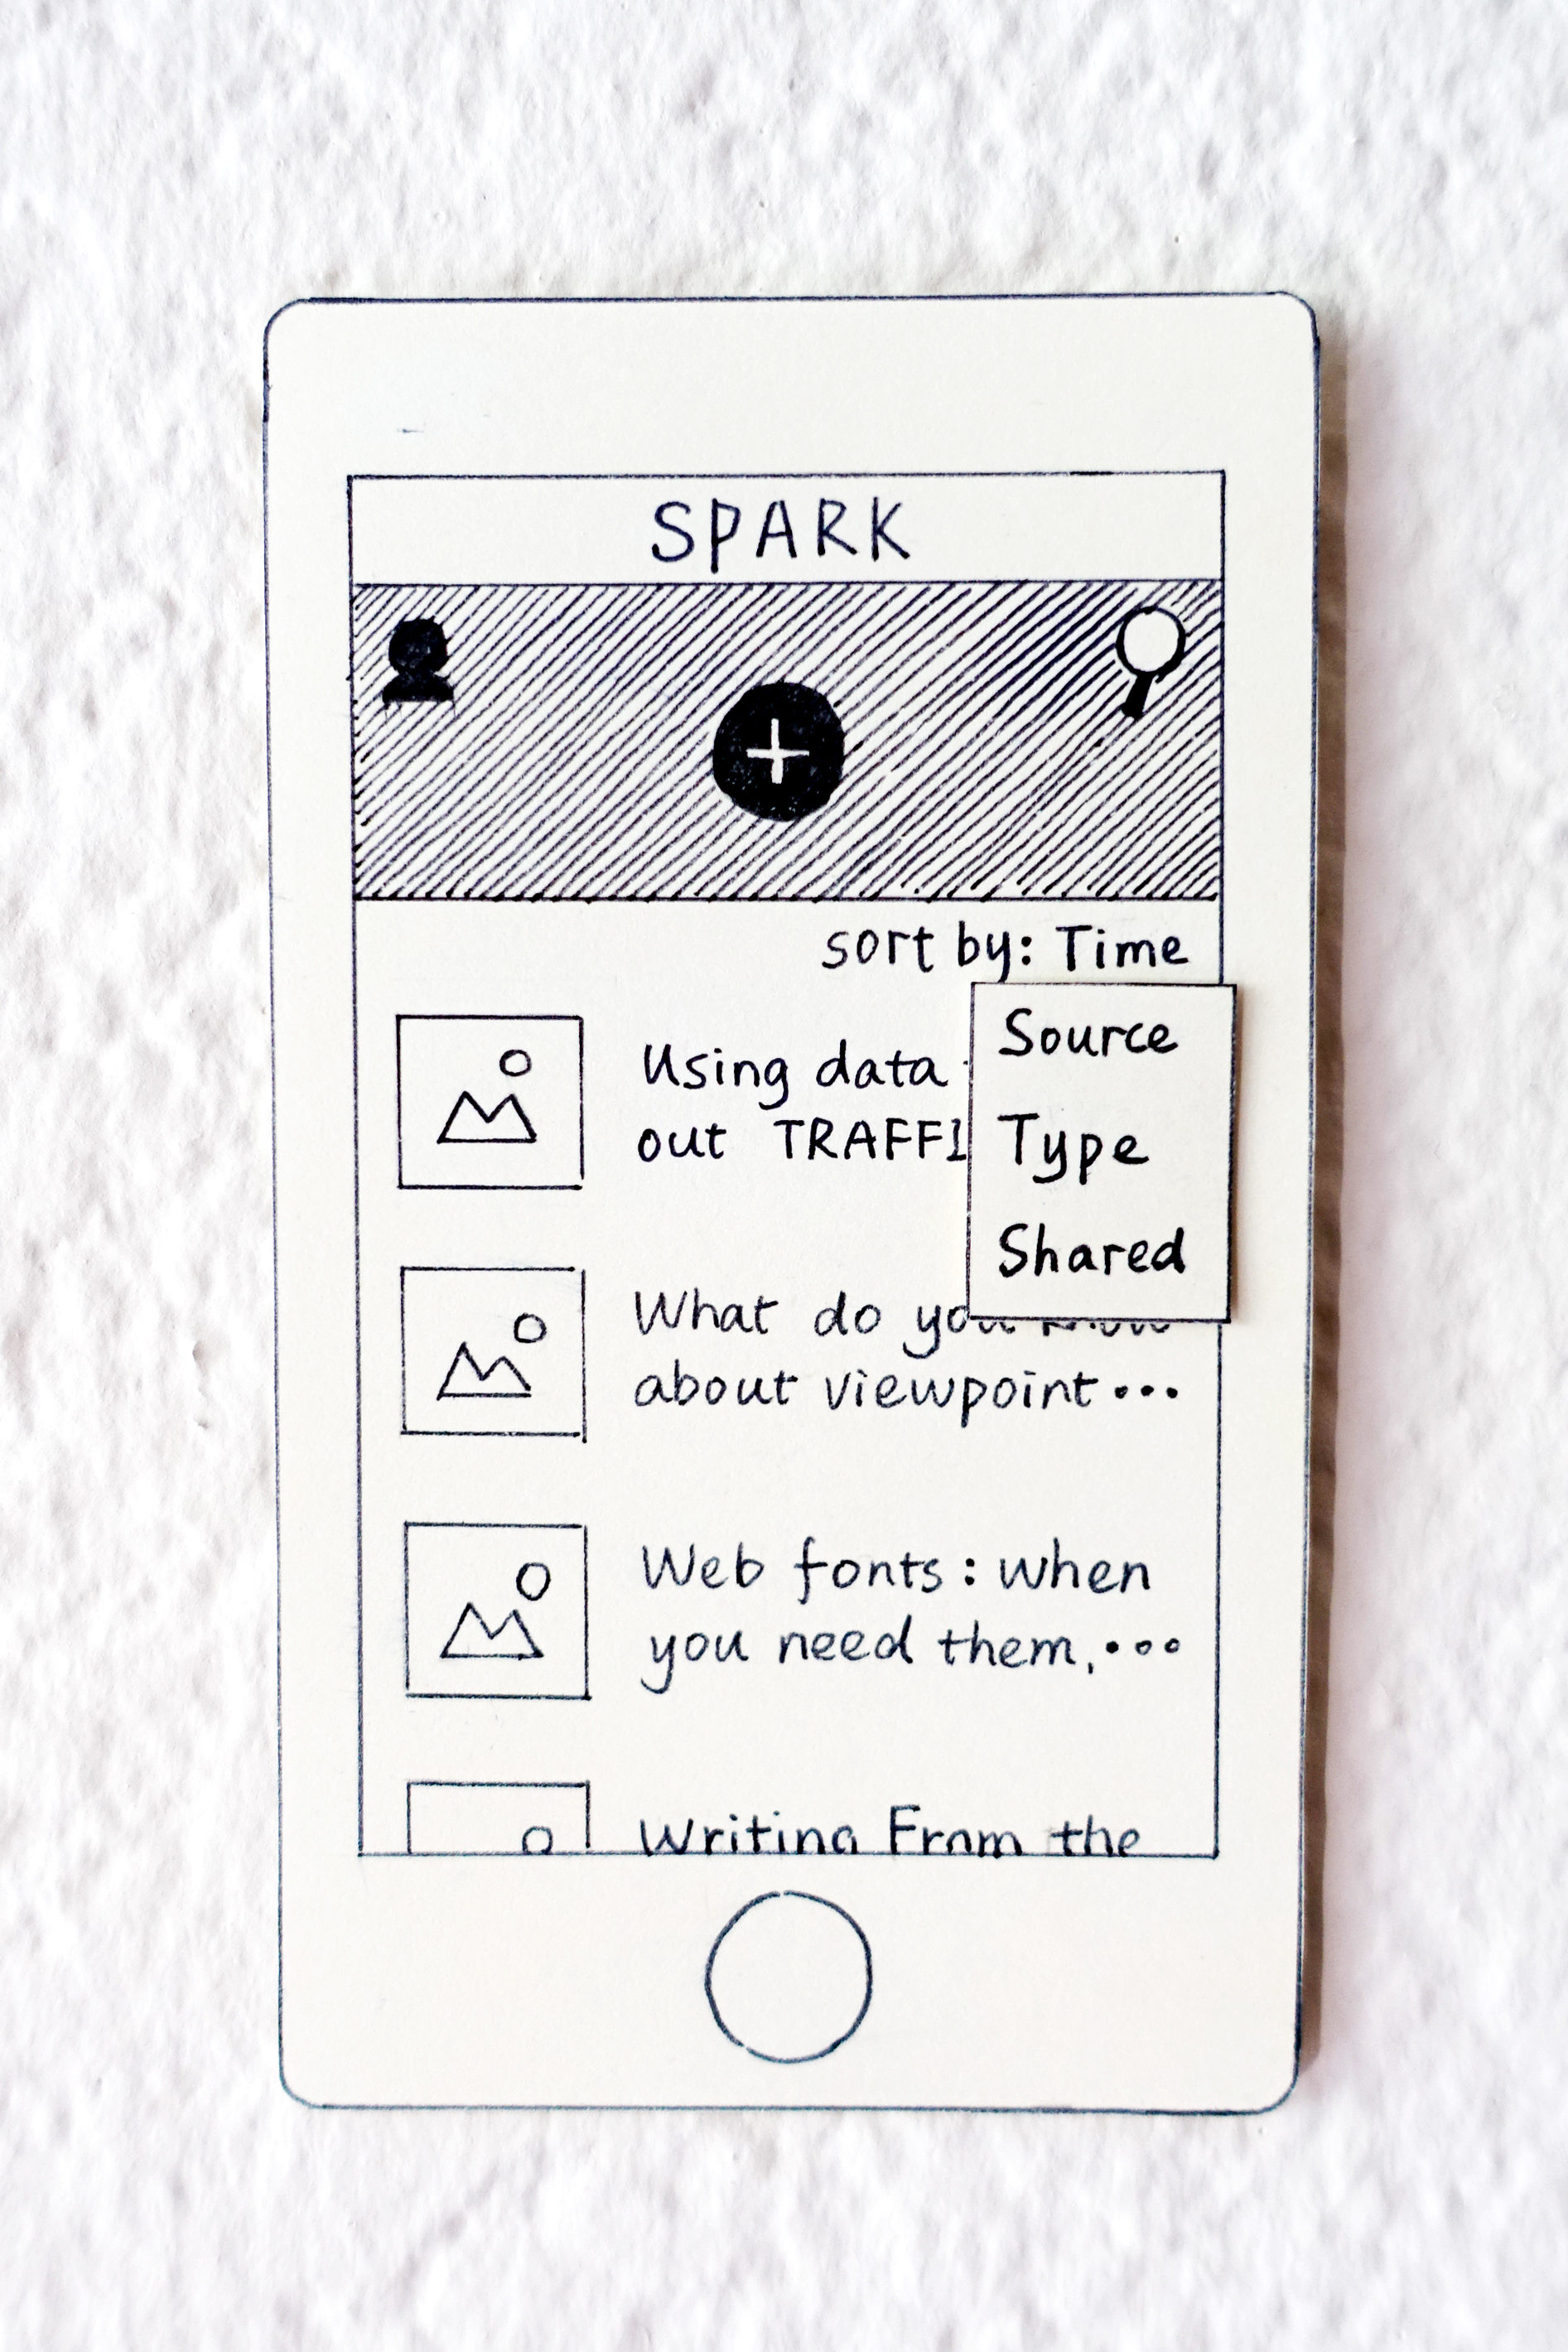 SPARK
sort by: Time
Source
Type
Shared
Using data
out TRAFFI
What do you
about viewpoint...
Web fonts: when
you need them,...
Writing From the